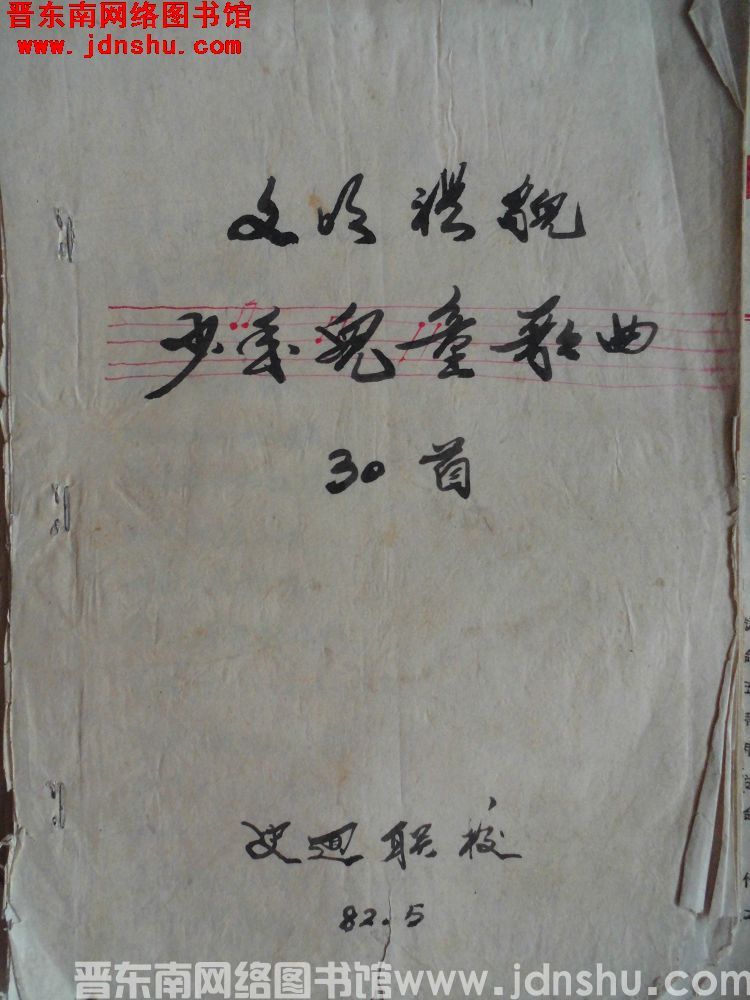 晋东南网络图书馆
www.jdnshu.com
文明禮貌
少年兒童歌曲
30首
史迴联校
82.5
晋东南网络图书馆www.jdnshu.com